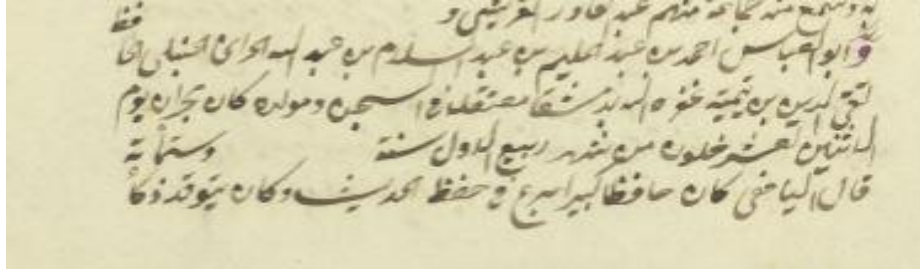 وسمع منه جماعة منهم عبد القادر القرشي و
وابو العباس احمد بن عبد الحليم بن عبد السلام بن عبد الله الحراني الحنبلي الحافظ
تقي الدين بن تيمية غفر الله له بدمشق معتقلا في السجن ومولده كان بحران يوم
الاثنين لعشر خلون من شهر ربيع الاول سنة وستمائة
قال اليافعي كان حافظا كبيرا برع في حفظ الحديث وكان يتوقد ذكاً